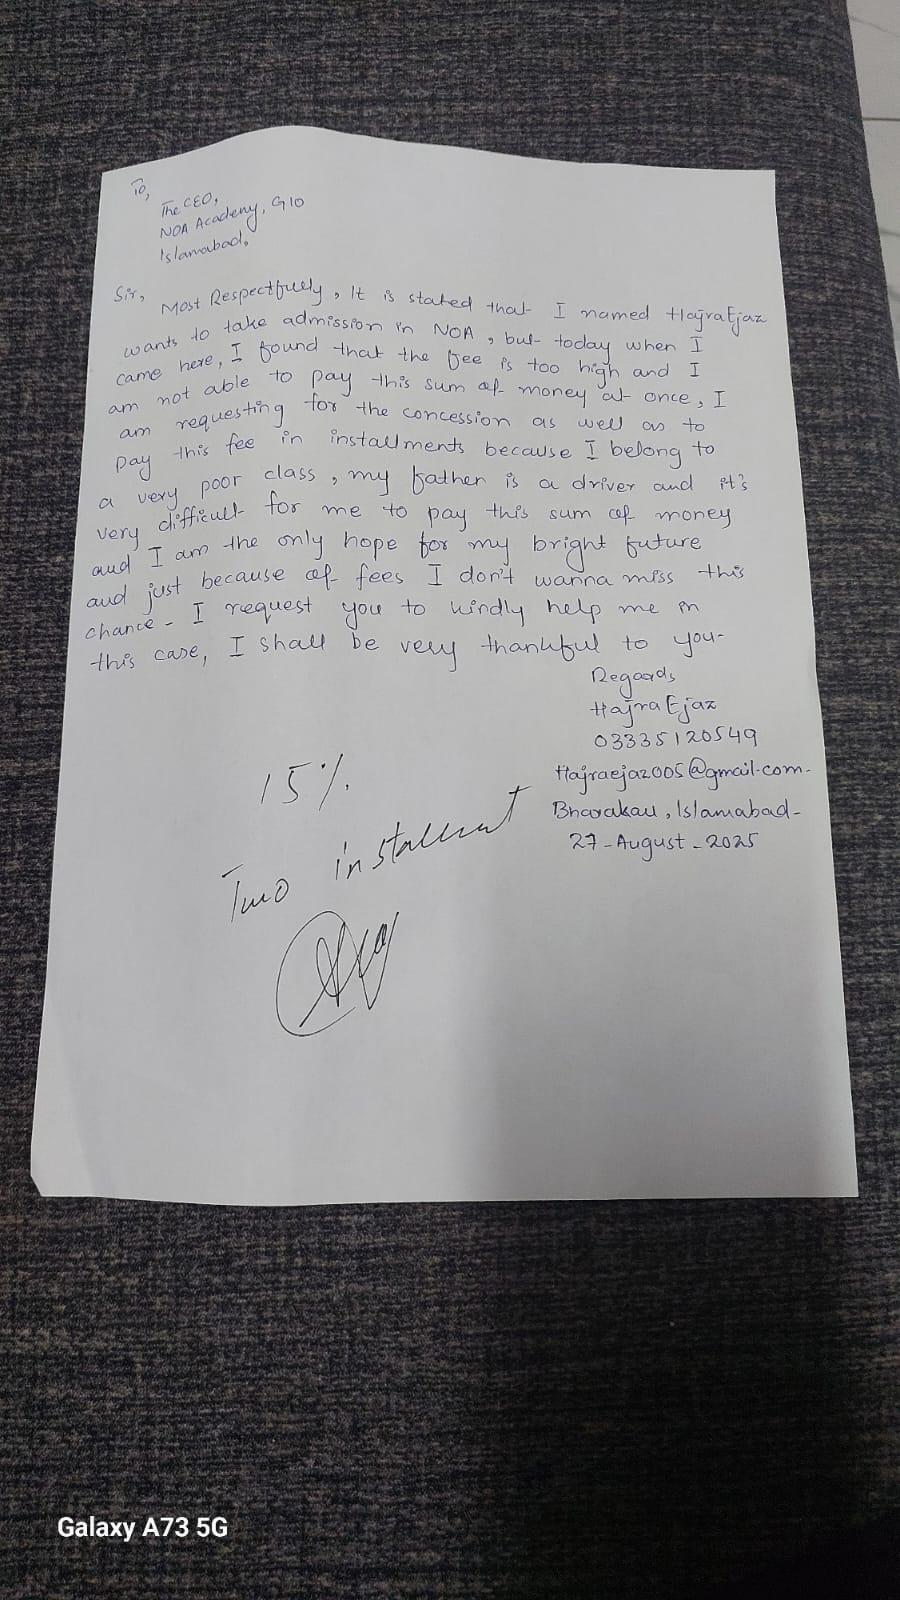 To,
The CEO,
NOA Academy, G10
Islamabad.
Sir,
Most Respectfully, It is stated that I named Hajra Ejaz
wants to take admission in NOA, but today when I
came here, I found that the fee is too high and I
am not able to pay this sum of money at once, I
am requesting for the concession as well as to
pay this fee in installments because I belong to
a very poor class, my father is a driver and it's
very difficult for me to pay this sum of money
and I am the only hope for my bright future
and just because of fees I don't wanna miss this
chance - I request you to kindly help me in
this case, I shall be very thankful to you-
Regards
Hajra Ejaz
03335120549
Hajraejaz005@gmail.com-
Bharakau, Islamabad-
27-August-2025
15%.
Two installment
Galaxy A73 5G